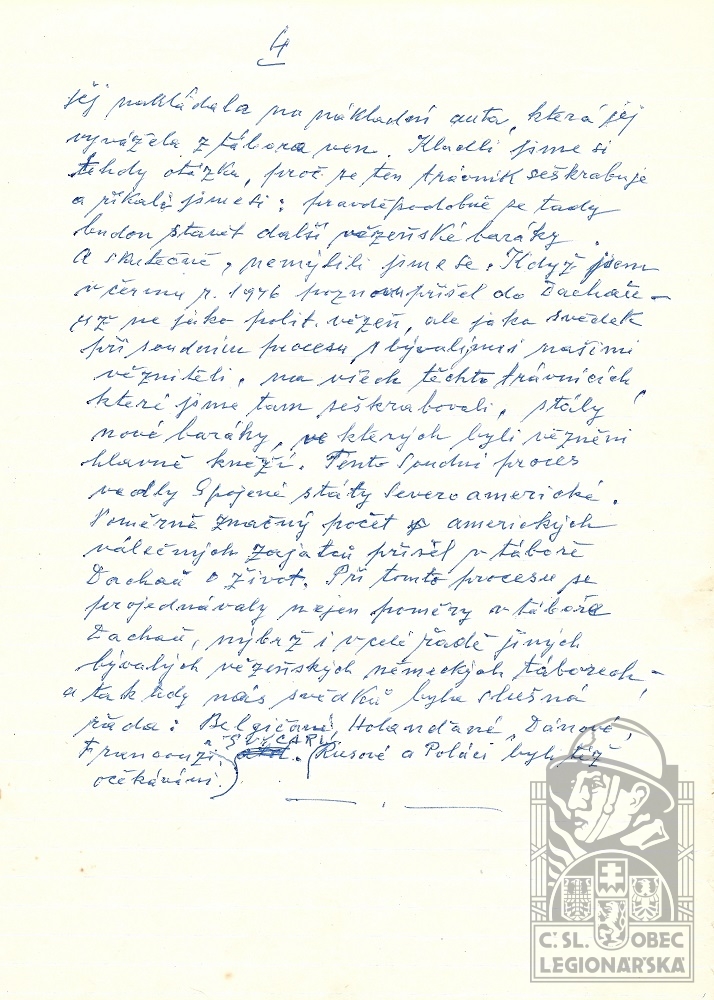 4
jej nakládala na nákladní auta, která jej
vyvážela z tábora ven. Kladli jsme si
tehdy otázku, proč se ten trávník seškrabuje
a říkali jsme si: pravděpodobně se tady
budou stavět další vězeňské baráky.
A skutečně, nemýlili jsme se. Když jsem
v červnu r. 1946 poznovu přišel do Dachau -
už ne jako polit. vězeň, ale jako svědek
při soudním procesu s bývalými našimi
vězniteli, na všech těchto trávnících,
které jsme tam seškrabovali, stály
nové baráky, ve kterých byli vězněni
hlavně kněží. Tento soudní proces
vedly Spojené státy Severoamerické.
Poměrně značný počet amerických
válečných zajatců přišel v táboře
Dachau o život. Při tomto procesu se
projednávaly nejen poměry v táboře
Dachau, nýbrž i v celé řadě jiných
bývalých vězeňských německých táborech -
a tak tedy nás svědků byla slušná
řada: Belgičané, Holanďané, Dánové,
Francouzi, ŠVÝCAŘI. (Rusové a Poláci byli též
očekáváni.)
Č.SL. OBEC
LEGIONÁŘSKÁ